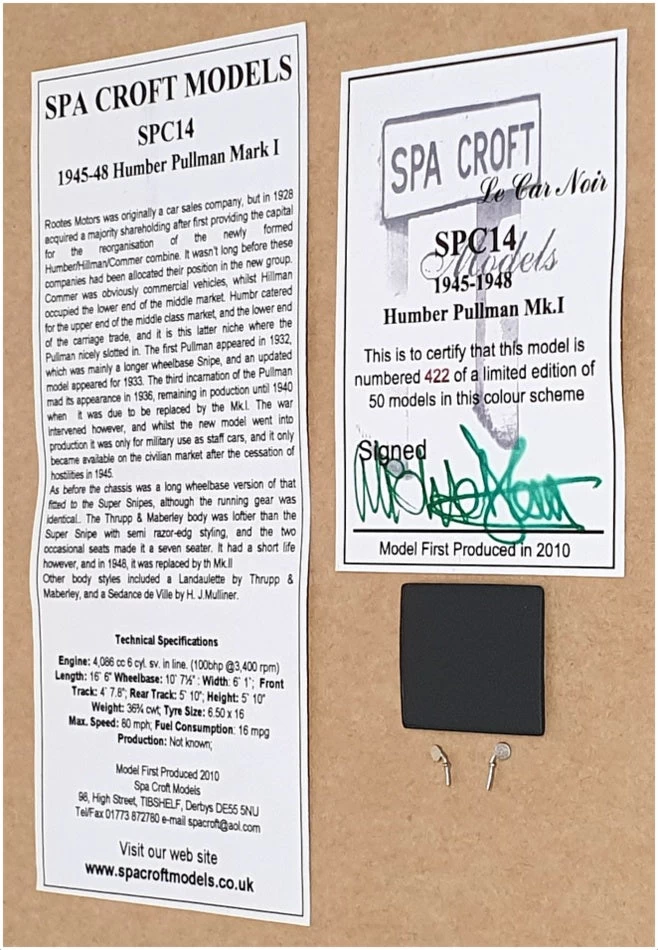 SPA CROFT MODELS
SPC14
1945-48 Humber Pullman Mark I
Rootes Motors was originally a car sales company, but in 1928
acquired a majority shareholding after first providing the capital
for the reorganisation of the newly formed
Humber/Hillman/Commer combine. It wasn't long before these
companies had been allocated their position in the new group.
Commer was obviously commercial vehicles, whilst Hillman
occupied the lower end of the middle market. Humbr catered
for the upper end of the middle class market, and the lower end
of the carriage trade, and it is this latter niche where the
Pullman nicely slotted in. The first Pullman appeared in 1932,
which was mainly a longer wheelbase Snipe, and an updated
model appeared for 1933. The third incarnation of the Pullman
mad its appearance in 1936, remaining in poduction until 1940
when it was due to be replaced by the Mk.I. The war
intervened however, and whilst the new model went into
production it was only for military use as staff cars, and it only
became available on the civilian market after the cessation of
hostilities in 1945.
As before the chassis was a long wheelbase version of that
fitted to the Super Snipes, although the running gear was
identical.. The Thrupp & Maberley body was loftier than the
Super Snipe with semi razor-edg styling, and the two
occasional seats made it a seven seater. It had a short life
however, and in 1948, it was replaced by th Mk.II
Other body styles included a Landaulette by Thrupp &
Maberley, and a Sedance de Ville by H. J.Mulliner.
Technical Specifications
Engine: 4,086 cc 6 cyl. sv. in line. (100bhp @3,400 rpm)
Length: 16' 6" Wheelbase: 10' 7½" : Width: 6' 1"; Front
Track: 4' 7.8"; Rear Track: 5' 10"; Height: 5' 10"
Weight: 36¾ cwt; Tyre Size: 6.50 x 16
Max. Speed: 80 mph; Fuel Consumption: 16 mpg
Production: Not known;
Model First Produced 2010
Spa Croft Models
98, High Street, TIBSHELF, Derbys DE55 5NU
Tel/Fax 01773 872780 e-mail spacroft@aol.com
Visit our web site
www.spacroftmodels.co.uk
SPA CROFT
Le Car Noir
SPC14
Models
1945-1948
Humber Pullman Mk.I
This is to certify that this model is
numbered 422 of a limited edition of
50 models in this colour scheme
Signed
Model First Produced in 2010